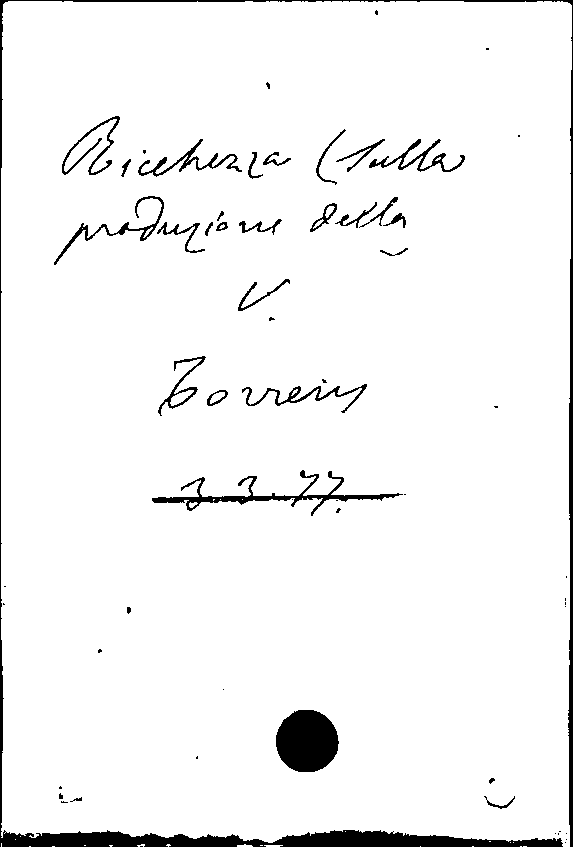 Ricchezza (Sulla
produzione della
V.
Torrens
3.3.77.